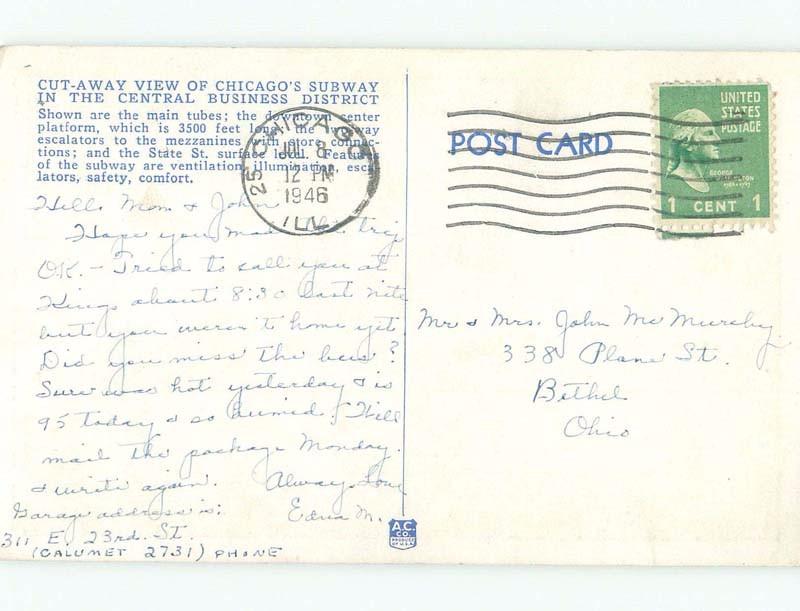 CUT-AWAY VIEW OF CHICAGO'S SUBWAY
IN THE CENTRAL BUSINESS DISTRICT
Shown are the main tubes; the downtown center
platform, which is 3500 feet long; the
escalators to the mezzanines with store connec-
tions; and the State St. surface level. Features
of the subway are ventilation, illumination, esca-
lators, safety, comfort.
Hello Mom & John
Hope you made the trip
O.K. - Tried to call you at
Kings about 8:30 last nite
but you weren't home yet.
Did you miss the bus?
Sure was hot yesterday & is
95 today & so humid. Will
mail the package Monday.
& write again. Always Love
Edna M.
Garage address is:
311 E. 23rd. St.
(CALUMET 2731) PHONE
CHICAGO
25
JUL 8
12 PM
1946
ILL
POST CARD
UNITED
STATES
POSTAGE
GEORGE
WASHINGTON
1 CENT 1
Mr & Mrs. John McMurchy
338 Plane St.
Bethel
Ohio
A.C.
CO.
PRODUCT
OF U.S.A.